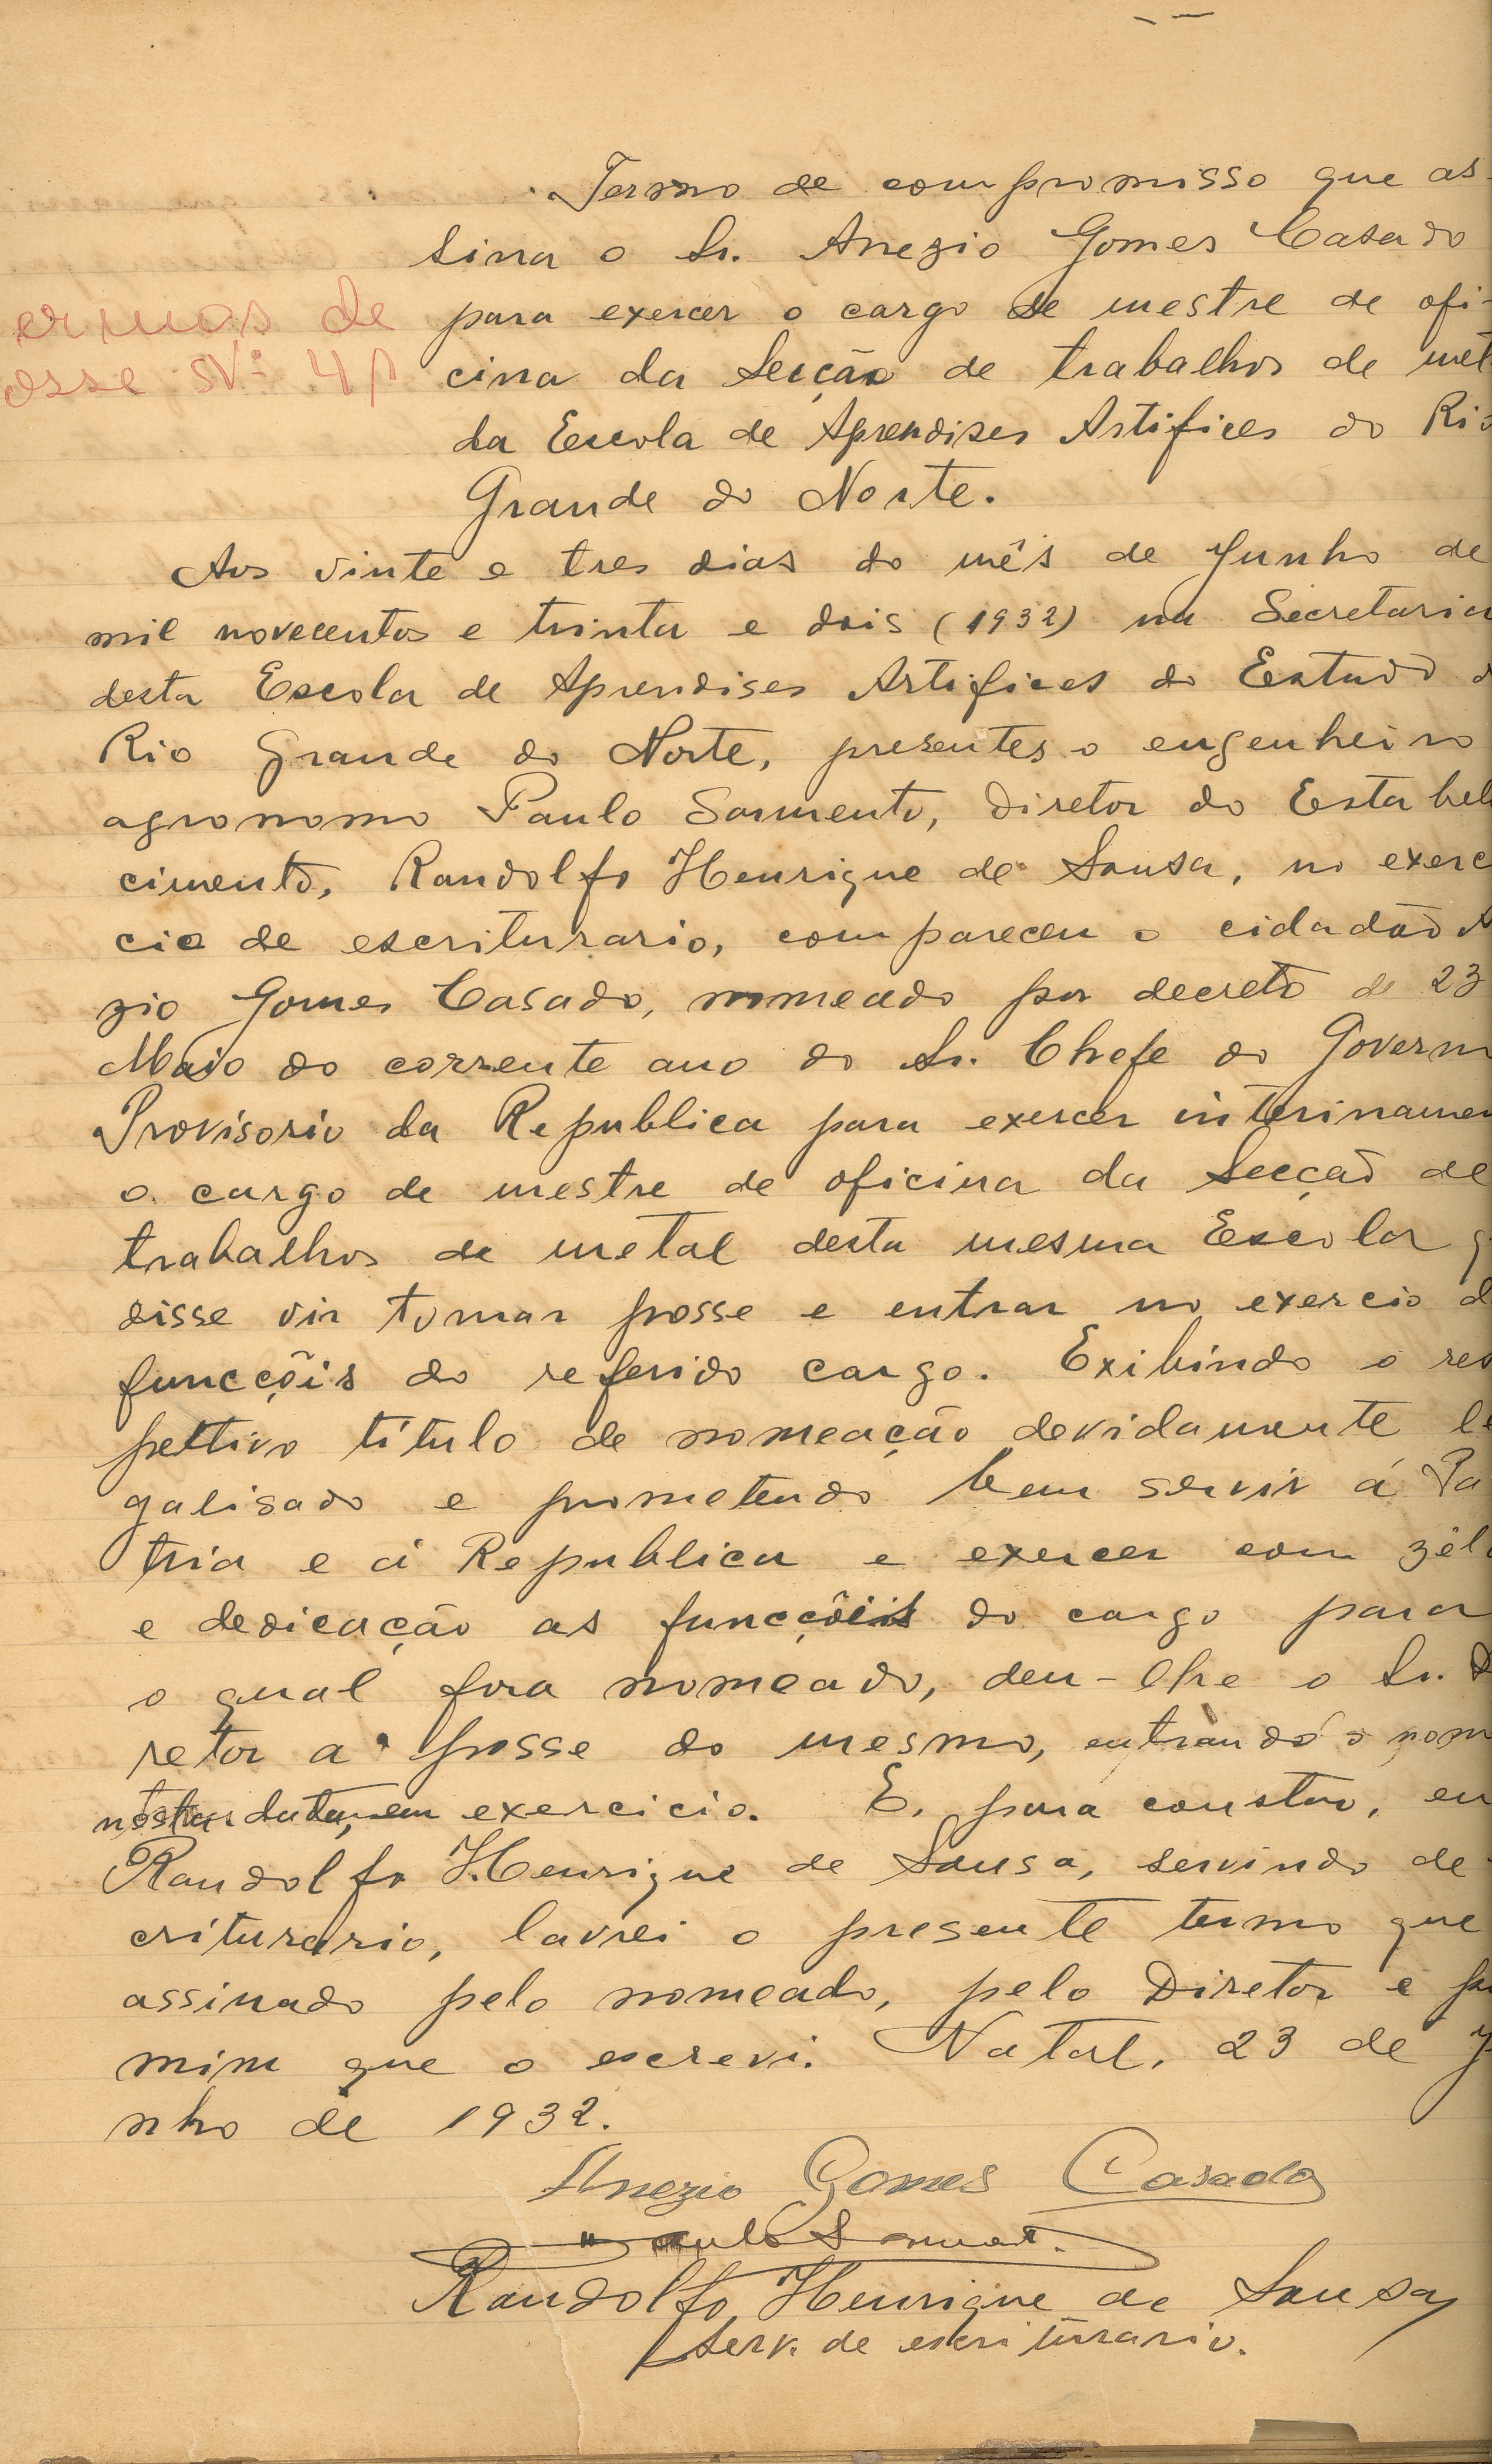 Termo de compromisso que as-
sina o Sr. Anezio Gomes Casado
para exercer o cargo de mestre de ofi-
ermos de
cina da Secção de trabalhos de met
osse Nº 41
da Escola de Aprendises Artifices do Rio
Grande do Norte.
Aos vinte e tres dias do mês de Junho de
mil novecentos e trinta e dois (1932) na Secretaria
desta Escola de Aprendises Artifices do Estado d
Rio Grande do Norte, presentes o engenheiro
agronomo Paulo Sarmento, diretor do Estabele
cimento, Randolfo Henrique de Sousa, no exerci
cio de escriturario, compareceu o cidadão A
zio Gomes Casado, nomeado por decreto de 23
Maio do corrente ano do Sr. Chefe do Govern
Provisorio da Republica para exercer interinamen
o cargo de mestre de oficina da Secção de
trabalhos de metal desta mesma Escola q
disse vir tomar posse e entrar no exercio d
funcçõis do referido cargo. Exibindo o res
petivo título de nomeação devidamente le
galisado e prometendo bem servir á Pa
tria e á Republica e exercer com zêlo
e dedicação as funcçõis do cargo para
o qual fora nomeado, deu-lhe o Sr. D
retor a posse do mesmo, entrando o nom
nesta data, em exercicio. E, para constar, eu
Randolfo Henrique de Sousa, servindo de
criturario, lavrei o presente termo que
assinado pelo nomeado, pelo Diretor e p
mim que o escrevi. Natal, 23 de J
nho de 1932.
Anezio Gomes Casado
Paulo Sarmento
Randolfo Henrique de Sousa
Serv. de escriturario.